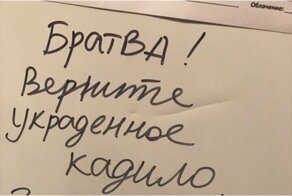 Облачение:
БратВА!
Верните
украденное
кадило